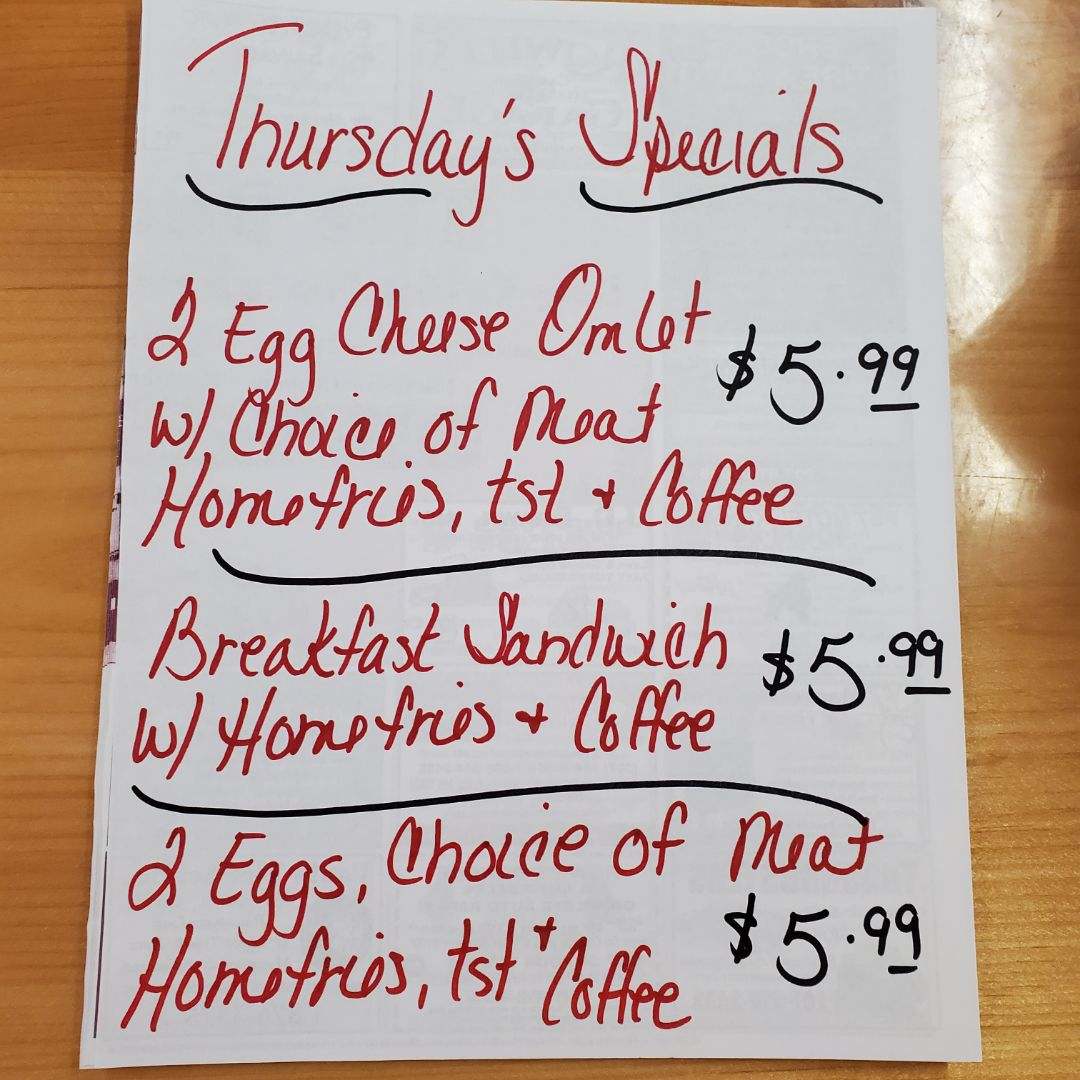 Thursday's Specials
2 Egg Cheese Omlet
$5.99
w/ Choice of Meat
Homefries, tst + Coffee
Breakfast Sandwich
$5.99
w/ Homefries + Coffee
2 Eggs, Choice of Meat
$5.99
Homefries, tst + Coffee